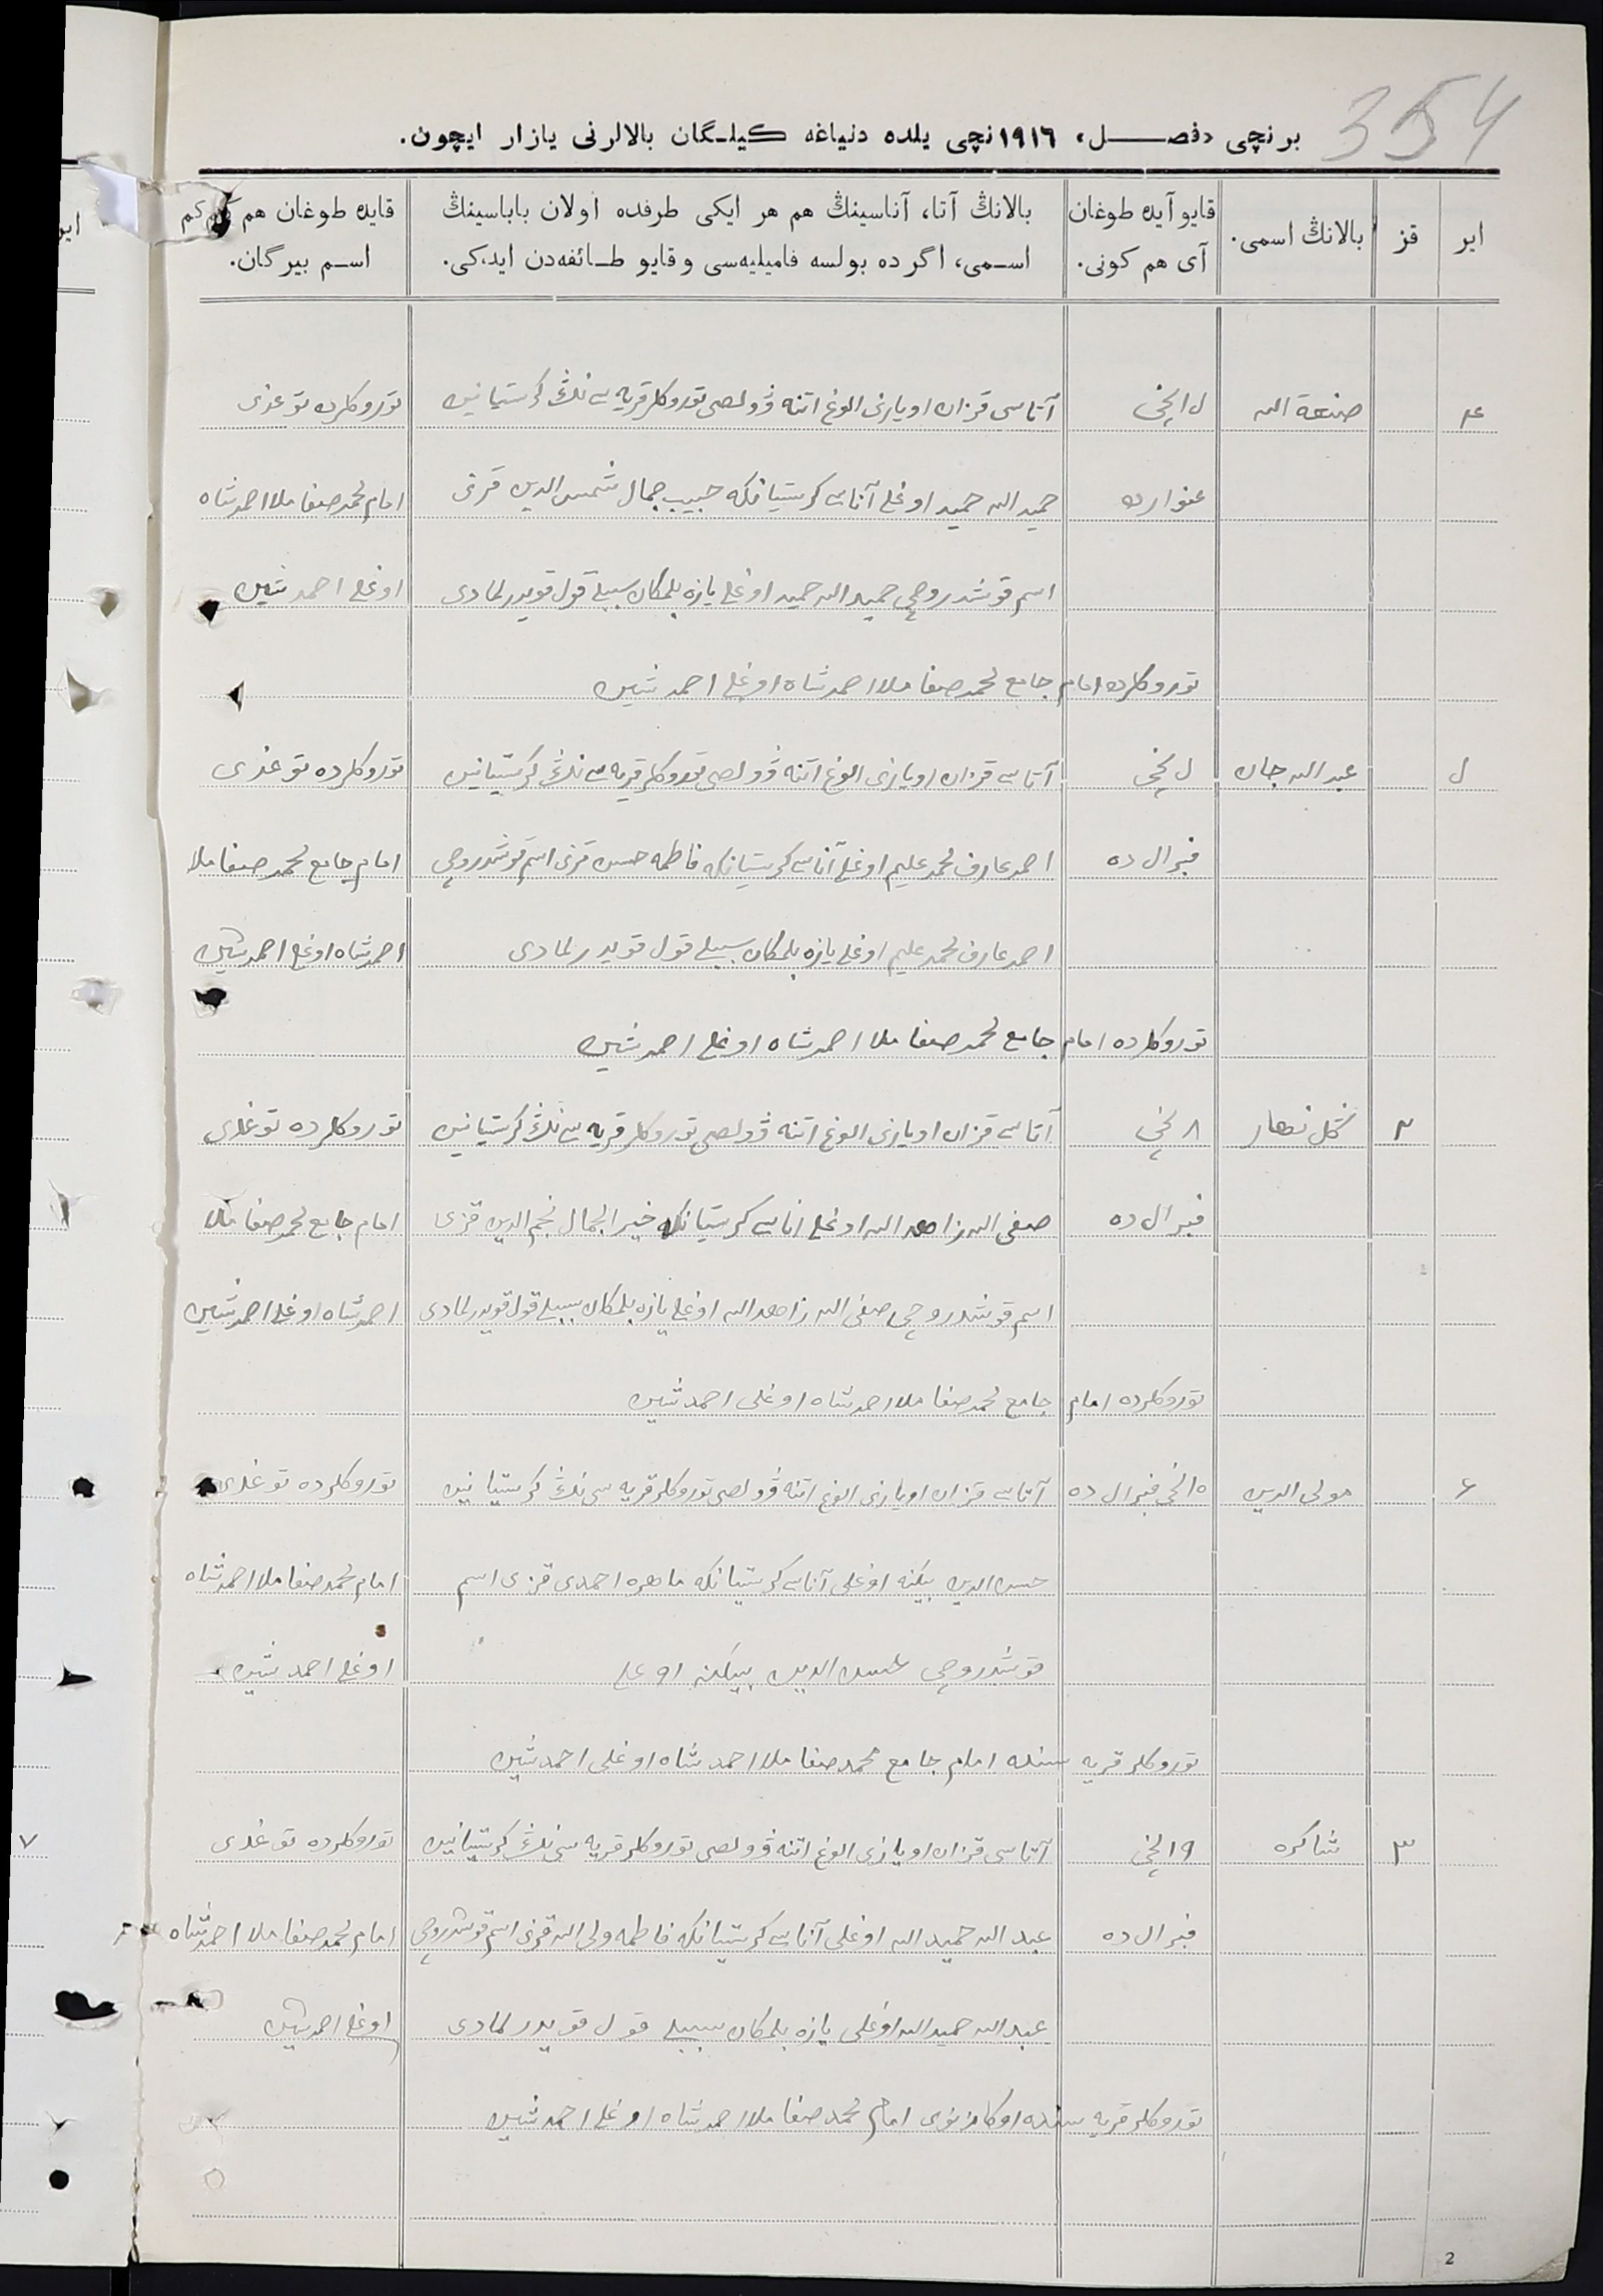 354
برنچی «فصل» ١٩١٦نچی یلده دنیاغه کیلگان بالالرنی یازار ایچون.
ایر
قز
بالانڭ اسمی.
قایو آیده طوغان آی هم کونی.
بالانڭ آتا، آناسینڭ هم هر ایکی طرفده اولان باباسینڭ
اسمی، اگرده بولسه فامیلیه‌سی و قایو طائفه‌دن ایدکی.
قایده طوغان هم کم
اسم بیرگان.
صنعة الله
آتاسی قزان اویازی الوغ اتنه ڤولصی توروکلر قریه سی‌نڭ کرستیانین
توروکلرده توغدی
عنوارده
حمید الله حمید اوغلی آناسی کرستیانکه حبیب جمال شمس الدین قزی
امام محمد صفا ملا احمدشاه
اسم قوشدروچی حمید الله حمید اوغلی یازه بلمکان سببلی قول قویدرلمادی
اوغلی احمدشین
توروکلرده امام جامع محمد صفا ملا احمدشاه اوغلی احمدشین
عبد الله جان
آتاسی قزان اویازی الوغ اتنه ڤولصی توروکلر قریه سی‌نڭ کرستیانین
توروکلرده توغدی
فبرال ده
احمد عارف محمد علیم اوغلی آناسی کرستیانکه فاطمه حسن قزی اسم قوشدروچی
امام جامع محمد صفا ملا
احمد عارف محمد علیم اوغلی یازه بلمکان سببلی قول قویدرلمادی
احمدشاه اوغلی احمدشین
توروکلرده امام جامع محمد صفا ملا احمدشاه اوغلی احمدشین
٢
گل نهار
٨ نچی
آتاسی قزان اویازی الوغ اتنه ڤولصی توروکلر قریه سی‌نڭ کرستیانین
توروکلرده توغدی
فبرال ده
صفی الله زاهد الله اوغلی اناسی کرستیانکه خیر الجمال نجم الدین قزی
امام جامع محمد صفا ملا
اسم قوشدروچی صفی الله زاهد الله اوغلی یازه بلمکان سببلی قول قویدرلمادی
احمدشاه اوغلی احمدشین
توروکلرده امام جامع محمد صفا ملا احمدشاه اوغلی احمدشین
٦
مولی الدین
نچی فبرال ده
آتاسی قزان اویازی الوغ اتنه ڤولصی توروکلر قریه سی‌نڭ کرستیانین
توروکلرده توغدی
حسن الدین بیکنه اوغلی آناسی کرستیانکه ماهره احمدی قزی اسم
امام محمد صفا ملا احمدشاه
قوشدروچی حسن الدین بیکنه اوغلی
اوغلی احمدشین
توروکلر قریه سنده امام جامع محمد صفا ملا احمدشاه اوغلی احمدشین
٣
شاکره
١٩ نچی
آتاسی قزان اویازی الوغ اتنه ڤولصی توروکلر قریه سی‌نڭ کرستیانین
توروکلرده توغدی
٧
فبرال ده
عبد الله حمید الله اوغلی آناسی کرستیانکه فاطمه ولی الله قزی اسم قوشدروچی
امام محمد صفا ملا احمدشاه
عبد الله حمید الله اوغلی یازه بلمکان سببلی قول قویدرلمادی
اوغلی احمدشین
توروکلر قریه سنده اوکازنوی امام محمد صفا ملا احمدشاه اوغلی احمدشین
2